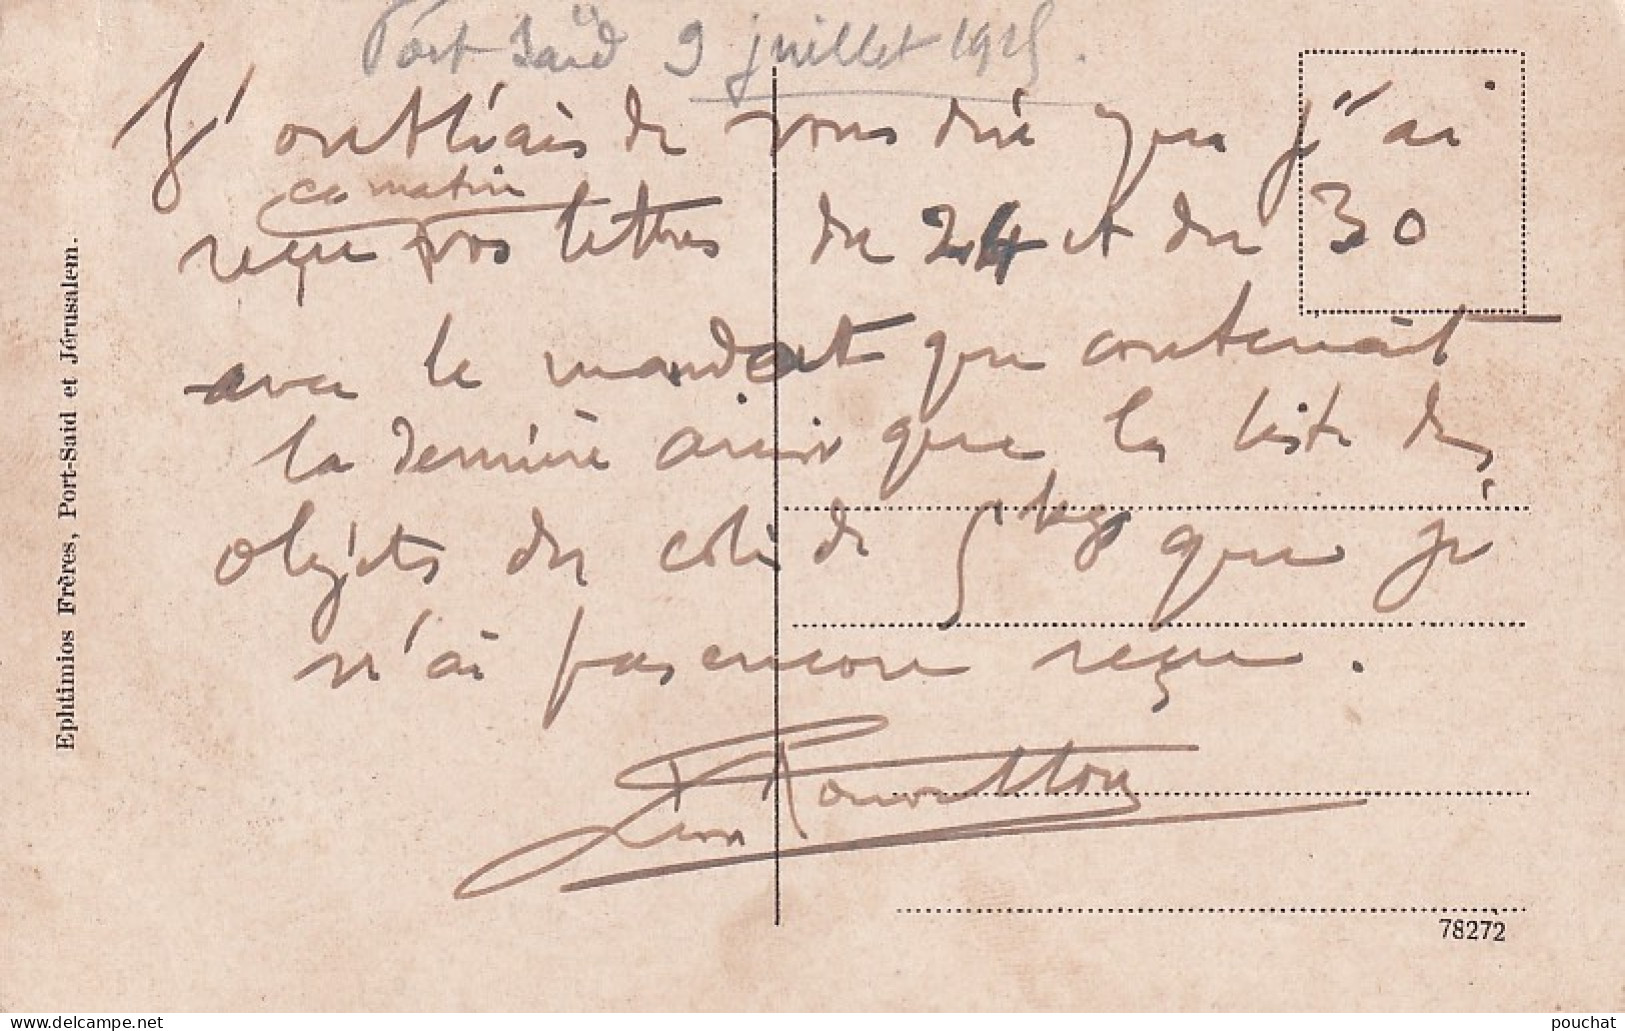 Port Saïd 9 juillet 1915.
J'oubliais de vous dire que j'ai
ce matin
reçu vos lettres du 24 et du 30
avec le mandat que contenait
la dernière ainsi que la liste des
objets du colis de 5 kgs que je
n'ai pas encore reçu.
Ephtimios Frères, Port-Said et Jérusalem.
78272
delcampe.net
pouchat